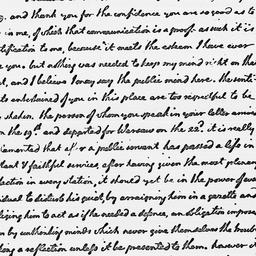 g. and thank you for the confidence you are so good as to
in me, of which that communication is a proof. as such it is
tification to me, because it meets the esteem I have ever
e you. but nothing was needed to keep my mind right on tha
ct, and I believe I may say the public mind here. the senti-
ts entertained of you in this place are too respectful to be
shaken. the person of whom you speak in your letter arrived
on the 19th and departed for Warsaw on the 22d. it is really
lamented that after a public servant has passed a life in
tant & faithful services, after having given the most plenary
faction in every station, it should yet be in the power of every
vidual to disturb his quiet, by arraigning him in a gazette and
liging him to act as if he needed a defence, an obligation imposed
m by unthinking minds which never give themselves the trouble
king a reflection unless it be presented to them. however it